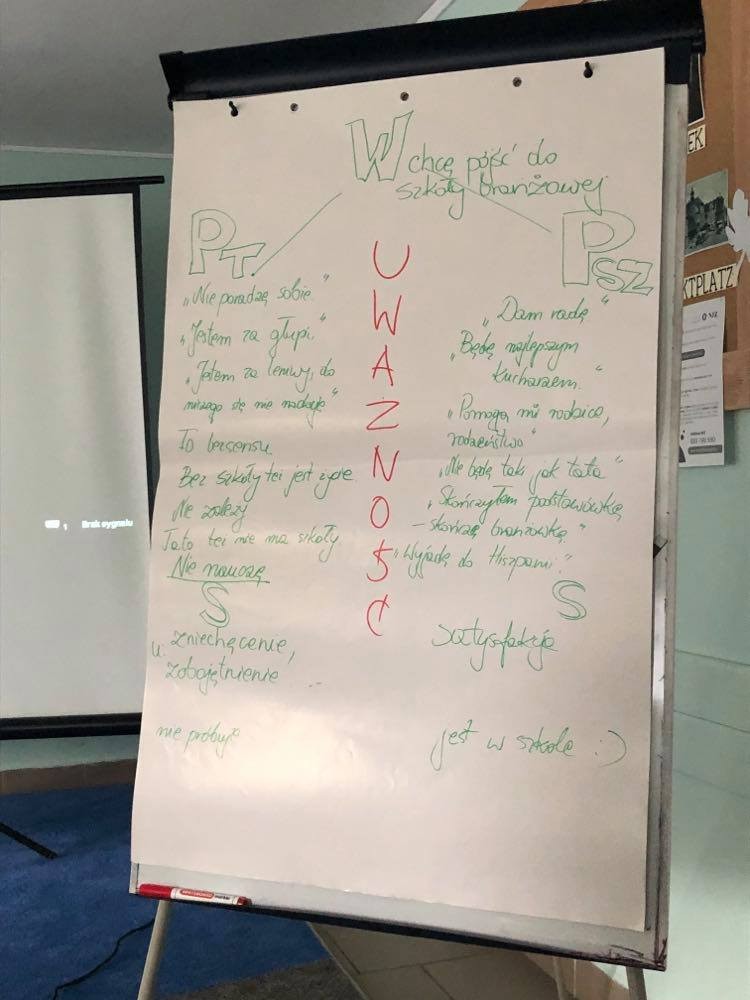 W chcę pójść do
szkoły branżowej
PT
„Nie poradzę sobie."
„Jestem za głupi."
„Jestem za leniwy, do
niczego się nie nadaję"
To bezsensu
Bez szkoły też jest życie
Nie zależy
Tata też nie ma szkoły
Nie nauczę
S
u: Zniechęcenie,
zobojętnienie
nie próbuje
UWAŻNOŚĆ
PSZ
„Dam radę"
„Będę najlepszym
Kucharzem."
„Pomogą mi rodzice,
rodzeństwo"
„Nie będę taki jak tata"
„Skończyłem podstawówkę
– skończę branżówkę."
„Wyjadę do Hiszpanii."
S
satysfakcja
jest w szkole :)
Brak sygnału
EK
KTPLATZ